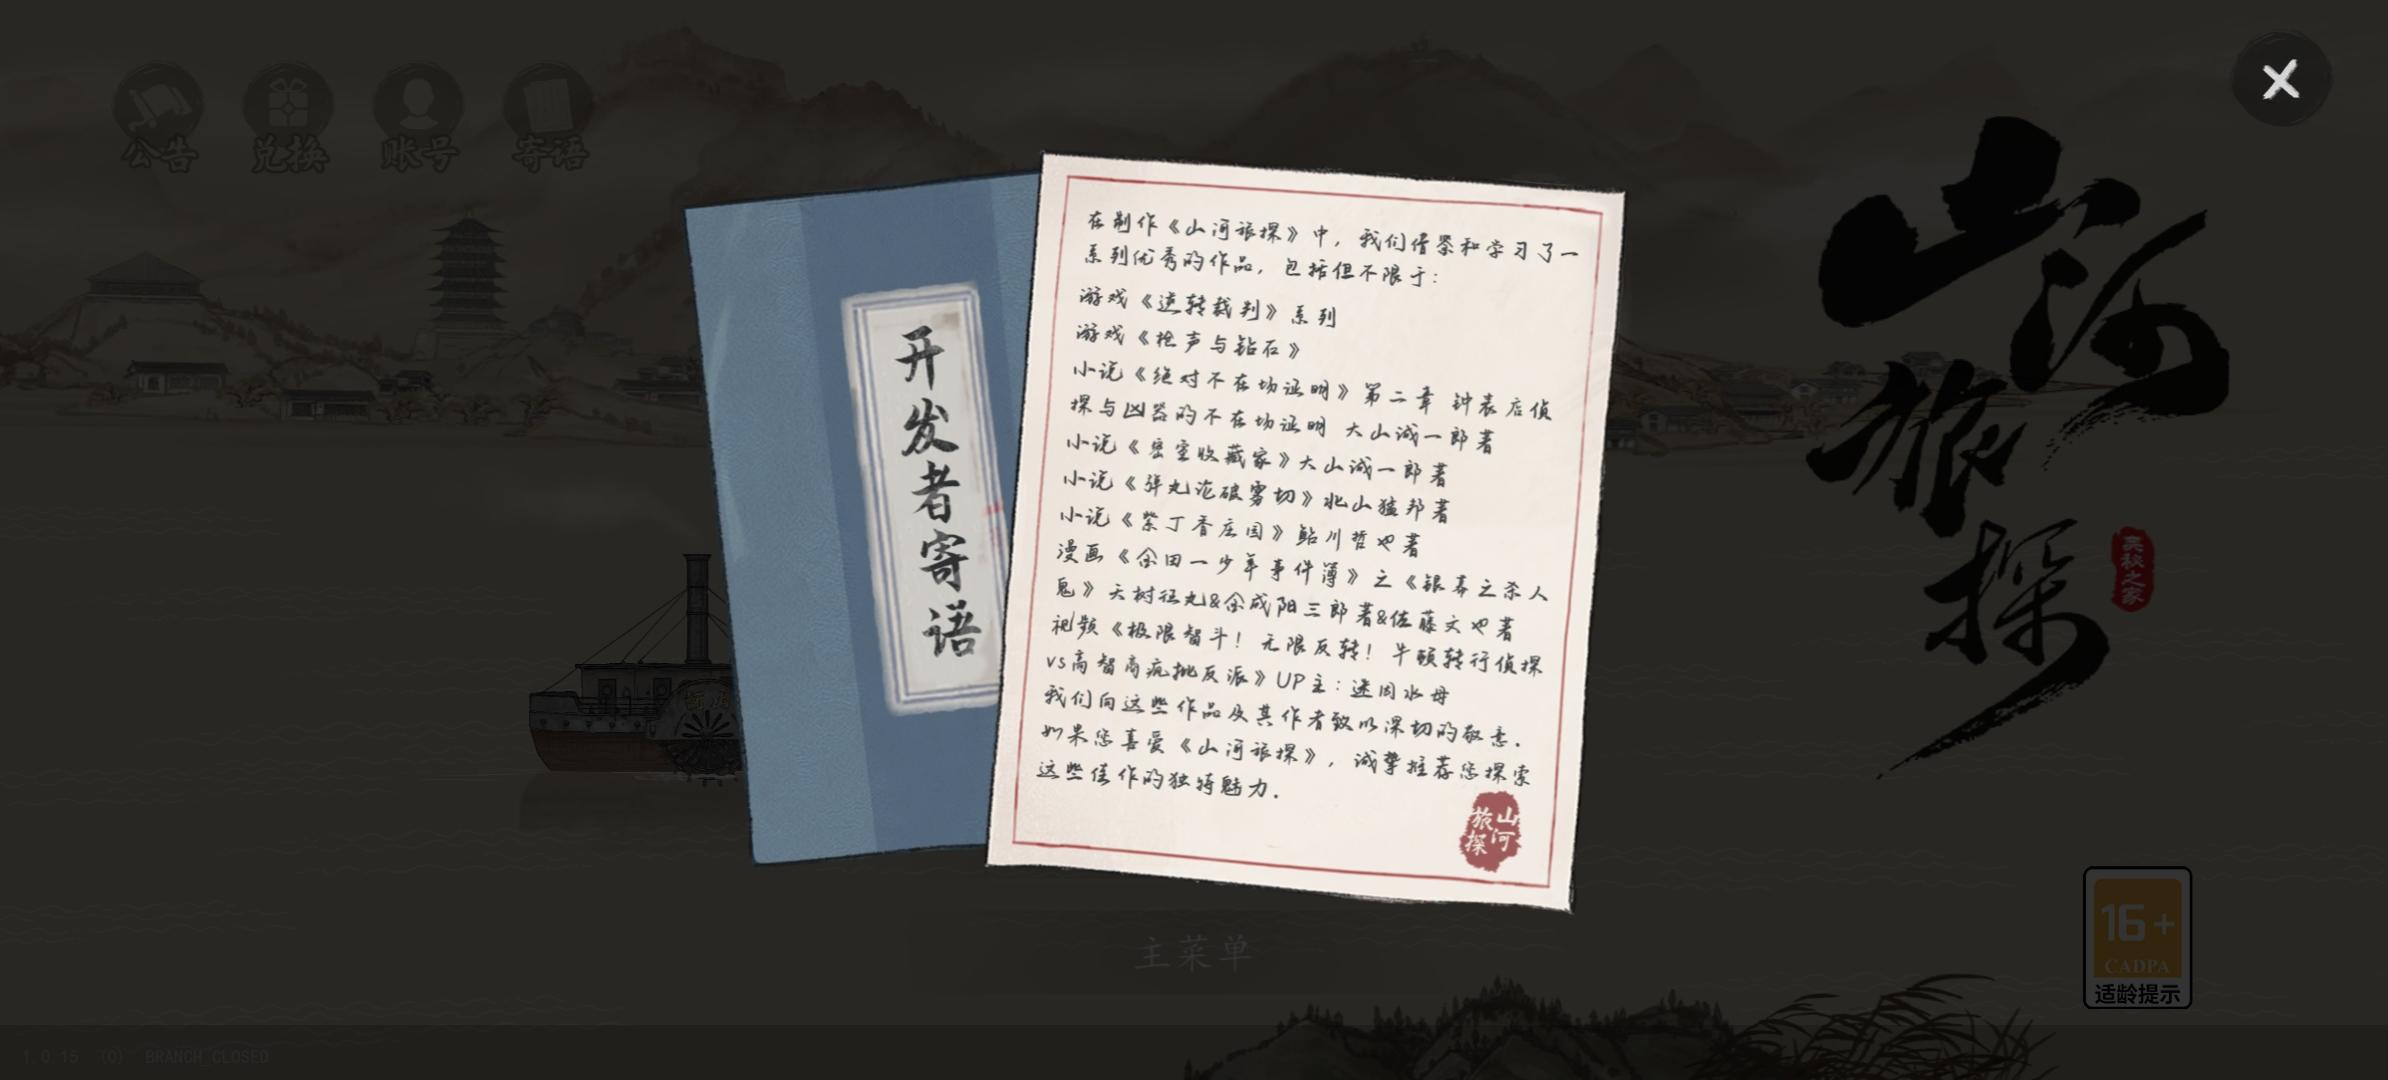 公告
兑换
账号
寄语
开发者寄语
在制作《山河旅探》中，我们借鉴和学习了一
系列优秀的作品，包括但不限于：
游戏《逆转裁判》系列
游戏《枪声与钻石》
小说《绝对不在场证明》第二章 钟表店侦
探与凶器的不在场证明 大山诚一郎著
小说《密室收藏家》大山诚一郎著
小说《弹丸论破雾切》北山猛邦著
小说《紫丁香庄园》鲇川哲也著
漫画《金田一少年事件簿》之《银幕之杀人
鬼》天树征丸&金成阳三郎著&佐藤文也著
视频《极限智斗！无限反转！牛顿转行侦探
vs高智商疯批反派》UP主：迷因水母
我们向这些作品及其作者致以深切的敬意.
如果您喜爱《山河旅探》，诚挚推荐您探索
这些佳作的独特魅力.
山河旅探
山河旅探
奥秘之家
主菜单
16+
CADPA
适龄提示
1.0.15 (0) BRANCH_CLOSED